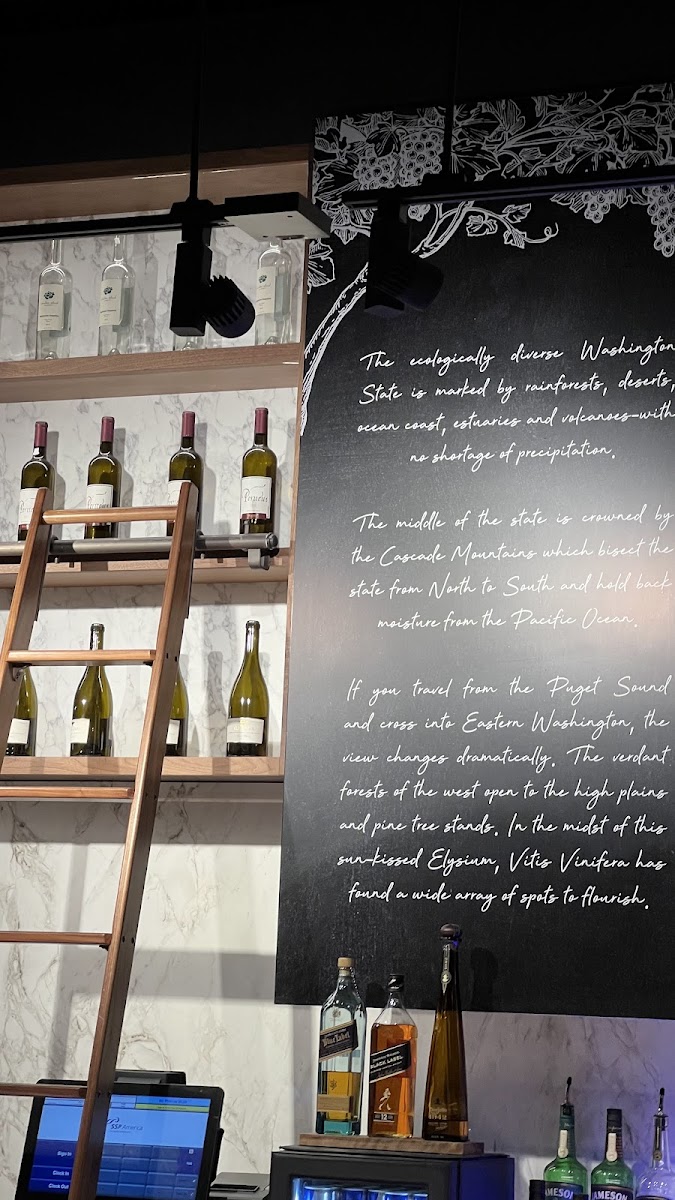 The ecologically diverse Washington
State is marked by rainforests, deserts,
ocean coast, estuaries and volcanoes-with
no shortage of precipitation.
The middle of the state is crowned by
the Cascade Mountains which bisect the
state from North to South and hold back
moisture from the Pacific Ocean.
If you travel from the Puget Sound
and cross into Eastern Washington, the
view changes dramatically. The verdant
forests of the west open to the high plains
and pine tree stands. In the midst of this
sun-kissed Elysium, Vitis Vinifera has
found a wide array of spots to flourish.
Blue Label
BLACK LABEL
12
SSP America
Sign In
Clock In
Clock Out
JAMESON
JAMESON